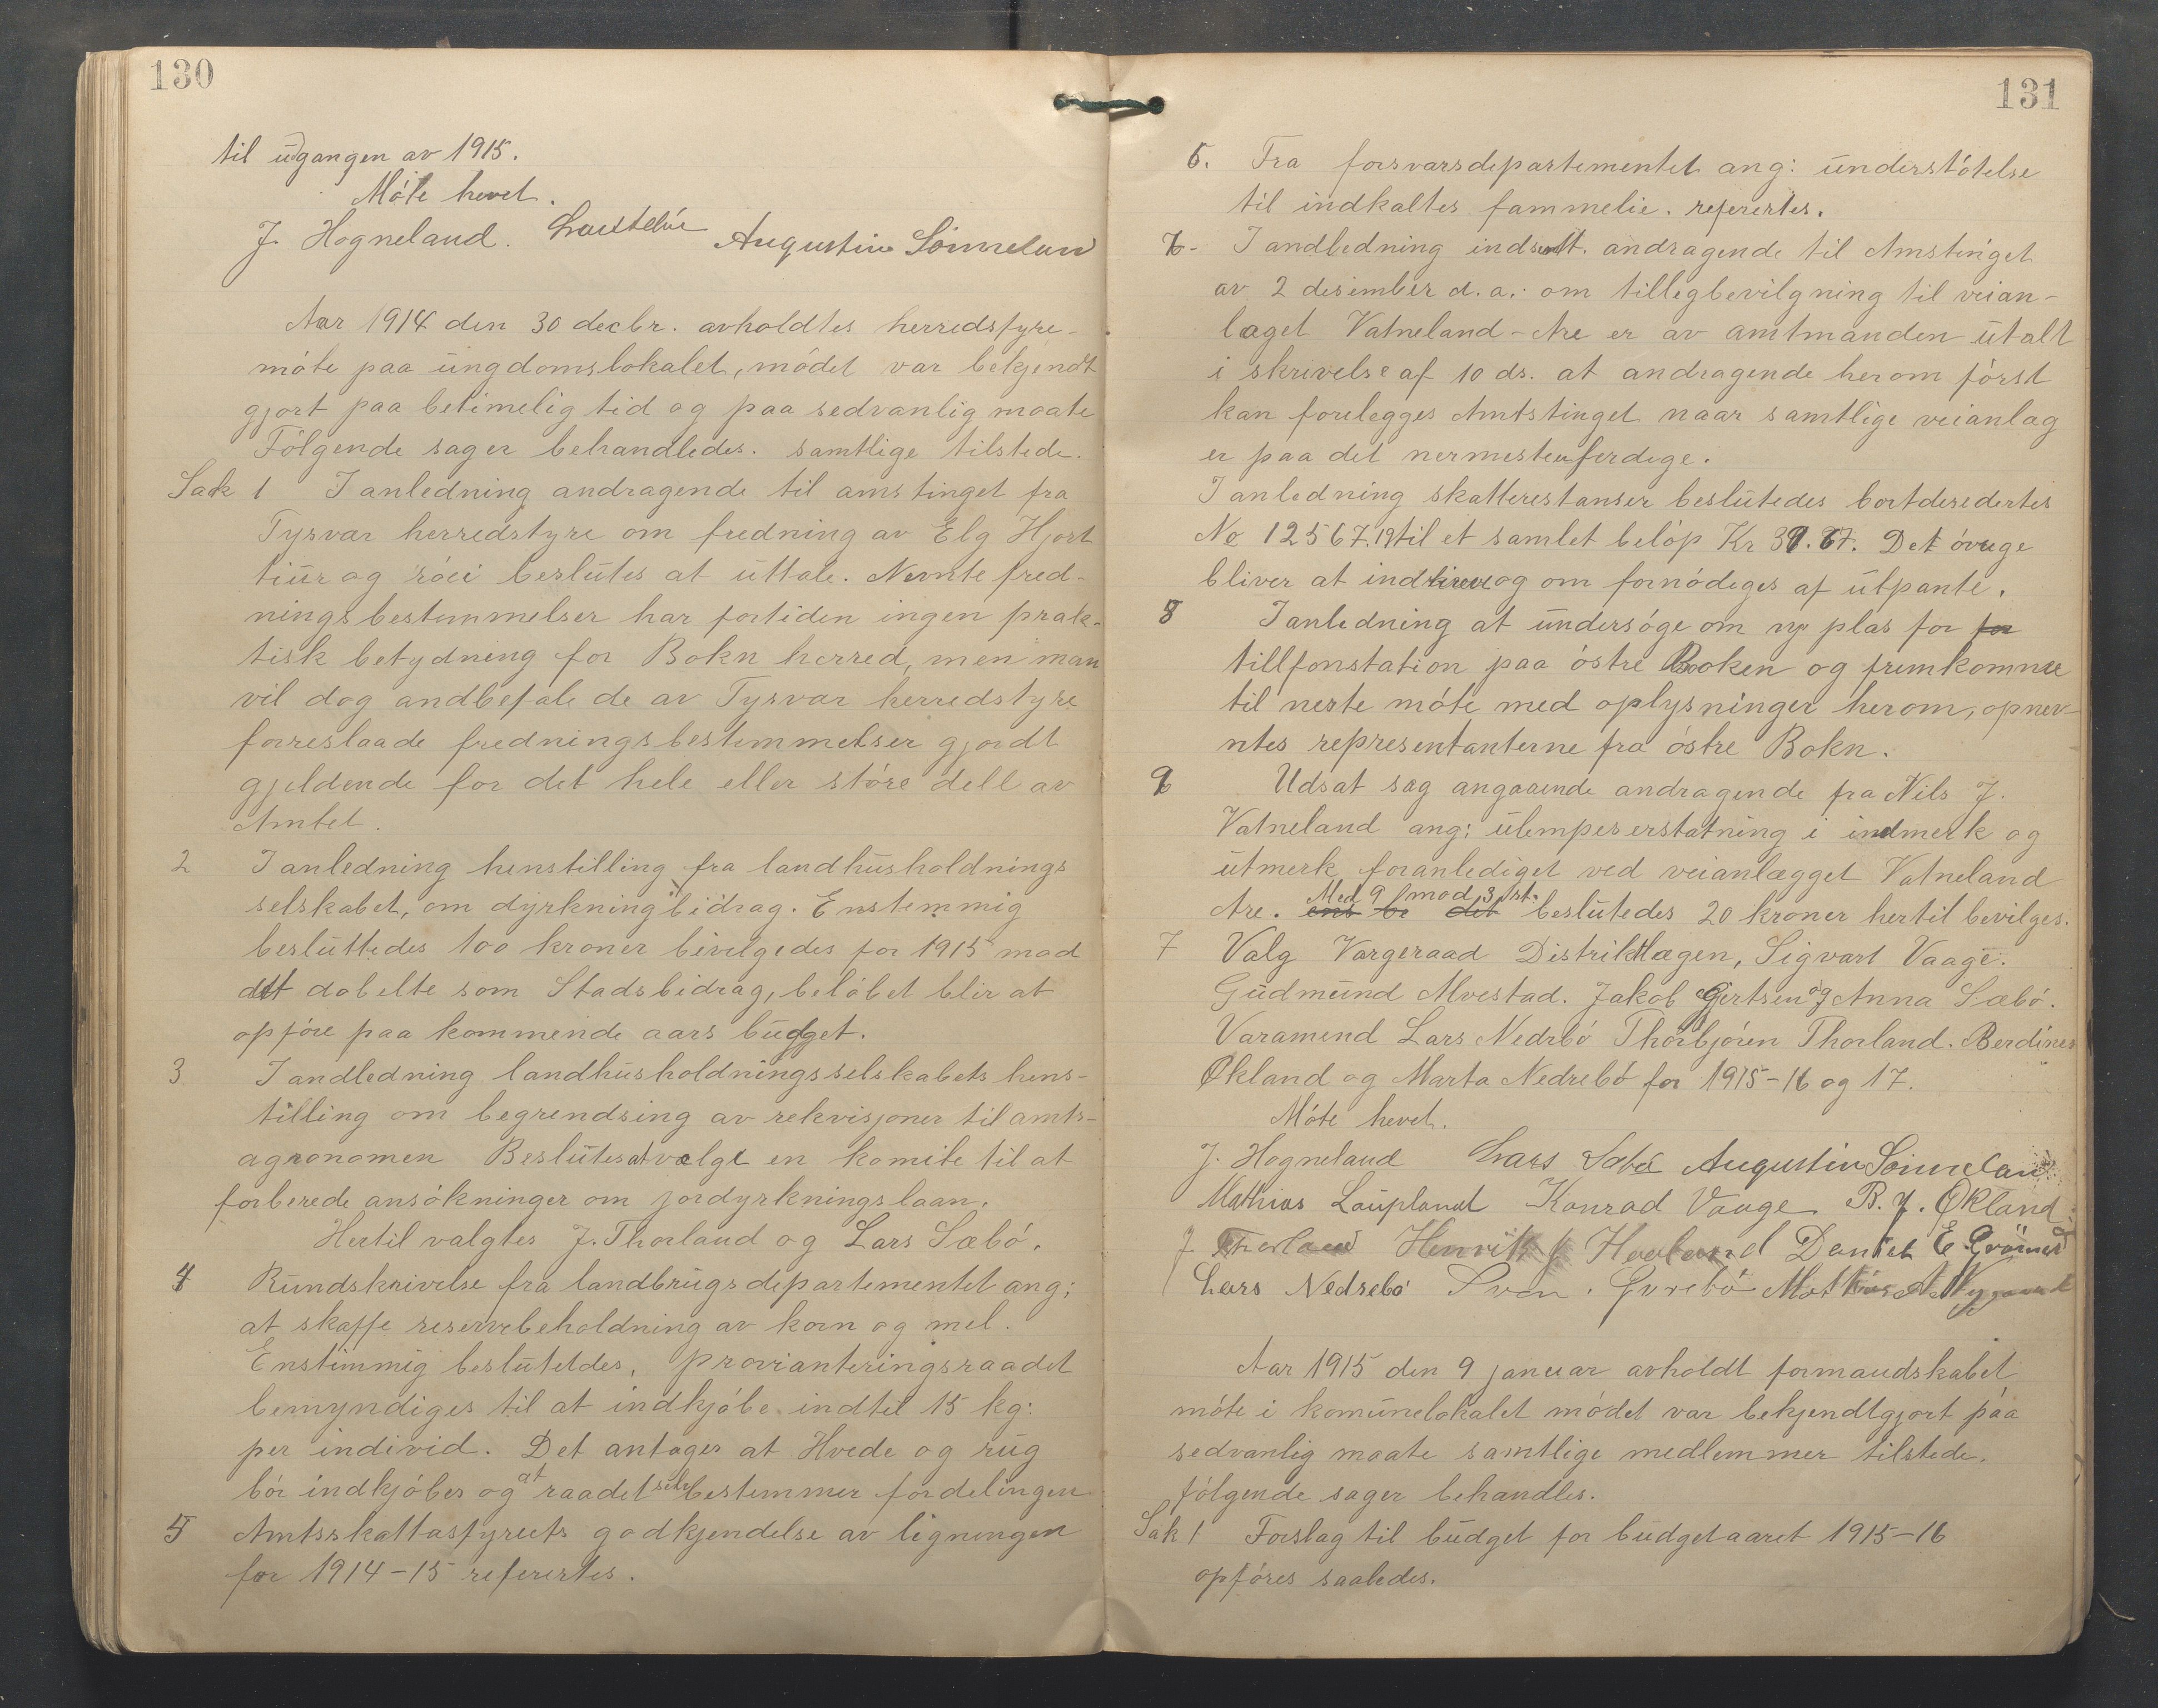 130
til udgangen av 1915.
Móte hevet.
J. Hogneland. Augustin Sönnelan
Aar 1914 den 30 decbr. avholdtes herredstyre-
móte paa ungdomslokalet, módet var bekjendt
gjort paa betimelig tid og paa sedvanlig maate
Fólgende sager behandledes. samtlige tilstede.
Sak 1 I anledning andragende til amstinget fra
Tysvar herredstyre om fredning av Elg Hjort
tiur og róei beslutes at uttale. Nevnte fred-
ningsbestemmelser har fortiden ingen prak-
tisk betydning for Bokn herred, men man
vil dog andbefale de av Tysvar herredstyre
forreslaade fredningsbestemmelser gjordt
gjeldende for det hele eller störe dell av
Amtet.
2 I anledning henstilling fra landhusholdnings
selskabet, om dyrkningbidrag. Enstemmig
besluttedes 100 kroner bivilgedes for 1915 mod
det dobelte som Stadsbidrag, belóbet blir at
opfóre paa kommende aars budget.
3 I andledning landhusholdningsselskabets hens-
tilling om begrendsing av rekvisjoner til amts-
agronomen Beslutes at valgt en komite til at
forberede ansókninger om jordyrkningslaan.
Hertil valgtes J. Thorland og Lars Sæbó.
4 Rundskrivelse fra landbrugsdepartementet ang;
at skaffe reservebeholdning av korn og mel.
Enstimmig beslutetdes, provianteringsraadet
bemyndiges til at indkjóbe indtil 15 kg:
per individ. Det antages at Hvede og rug
bór indkjóbes og at raadet selv bestemmer fordelingen
5 Amtsskattastyrets godkjendelse av ligningen
for 1914-15 refererte​s.
131
6. Fra forsvarsdepartementet ang: understótelse
til indkaltes fammelie. refererte​s.
7- I andledning indsent. andragende til Amstinget
av 2 desimber d.a. om tillegbevilgning til veian-
laget Vatneland-Are er av amtmanden utalt
i skrivelse af 10 ds. at andragende herom först
kan forelegges Amtstinget naar samtlige veianlag
er paa det nermeste ferdege.
I anledning skatterestanser beslutedes bortdesedertes
No 12567.19 til et samlet belóp Kr 39.67. Det óvrige
bliver at inddrive og om fornódeges af utpante.
8 I anledning at undersóge om ny plas for for
tillfonstation paa óstre Boken og fremkomme
til neste móte med oplysninger herom, opnev-
ntes representanterne fra óstre Bokn.
9 Udsat sag angaaende andragende fra Nils J.
Vatneland ang: ulempeserstatning i indmerk og
utmerk foranlediget ved veianlægget Vatneland
Are. ens be det Med 9 mod 3 st. beslutedes 20 kroner hertil bevilges.
7 Valg Vargeraad Distriktlægen, Sigvart Vaage.
Gudmund Alvestad. Jakob Gjertsen og Anna Sæbó.
Varamend Lars Nedrebó Thorbjören Thorland. Berdines
Økland og Marta Nedrebó for 1915-16 og 17.
Móte hevet.
J. Hogneland Lars Sæbö Augustin Sönnelan
Mathias Laupland Konrad Vaage B. J. Økland
J Thorland Henrik J Havland Daniel E. Grönnes
Lars Nedrebó Sven . Gurebó
Aar 1915 den 9 januar avholdt formandskabet
móte i komunelokalet módet var bekjendtgjort paa
sedvanlig maate samtlige medlemmer tilstede.
fólgende sager behandles.
Sak 1 Forslag til budget for budgetaaret 1915-16
opfóres saaledes.